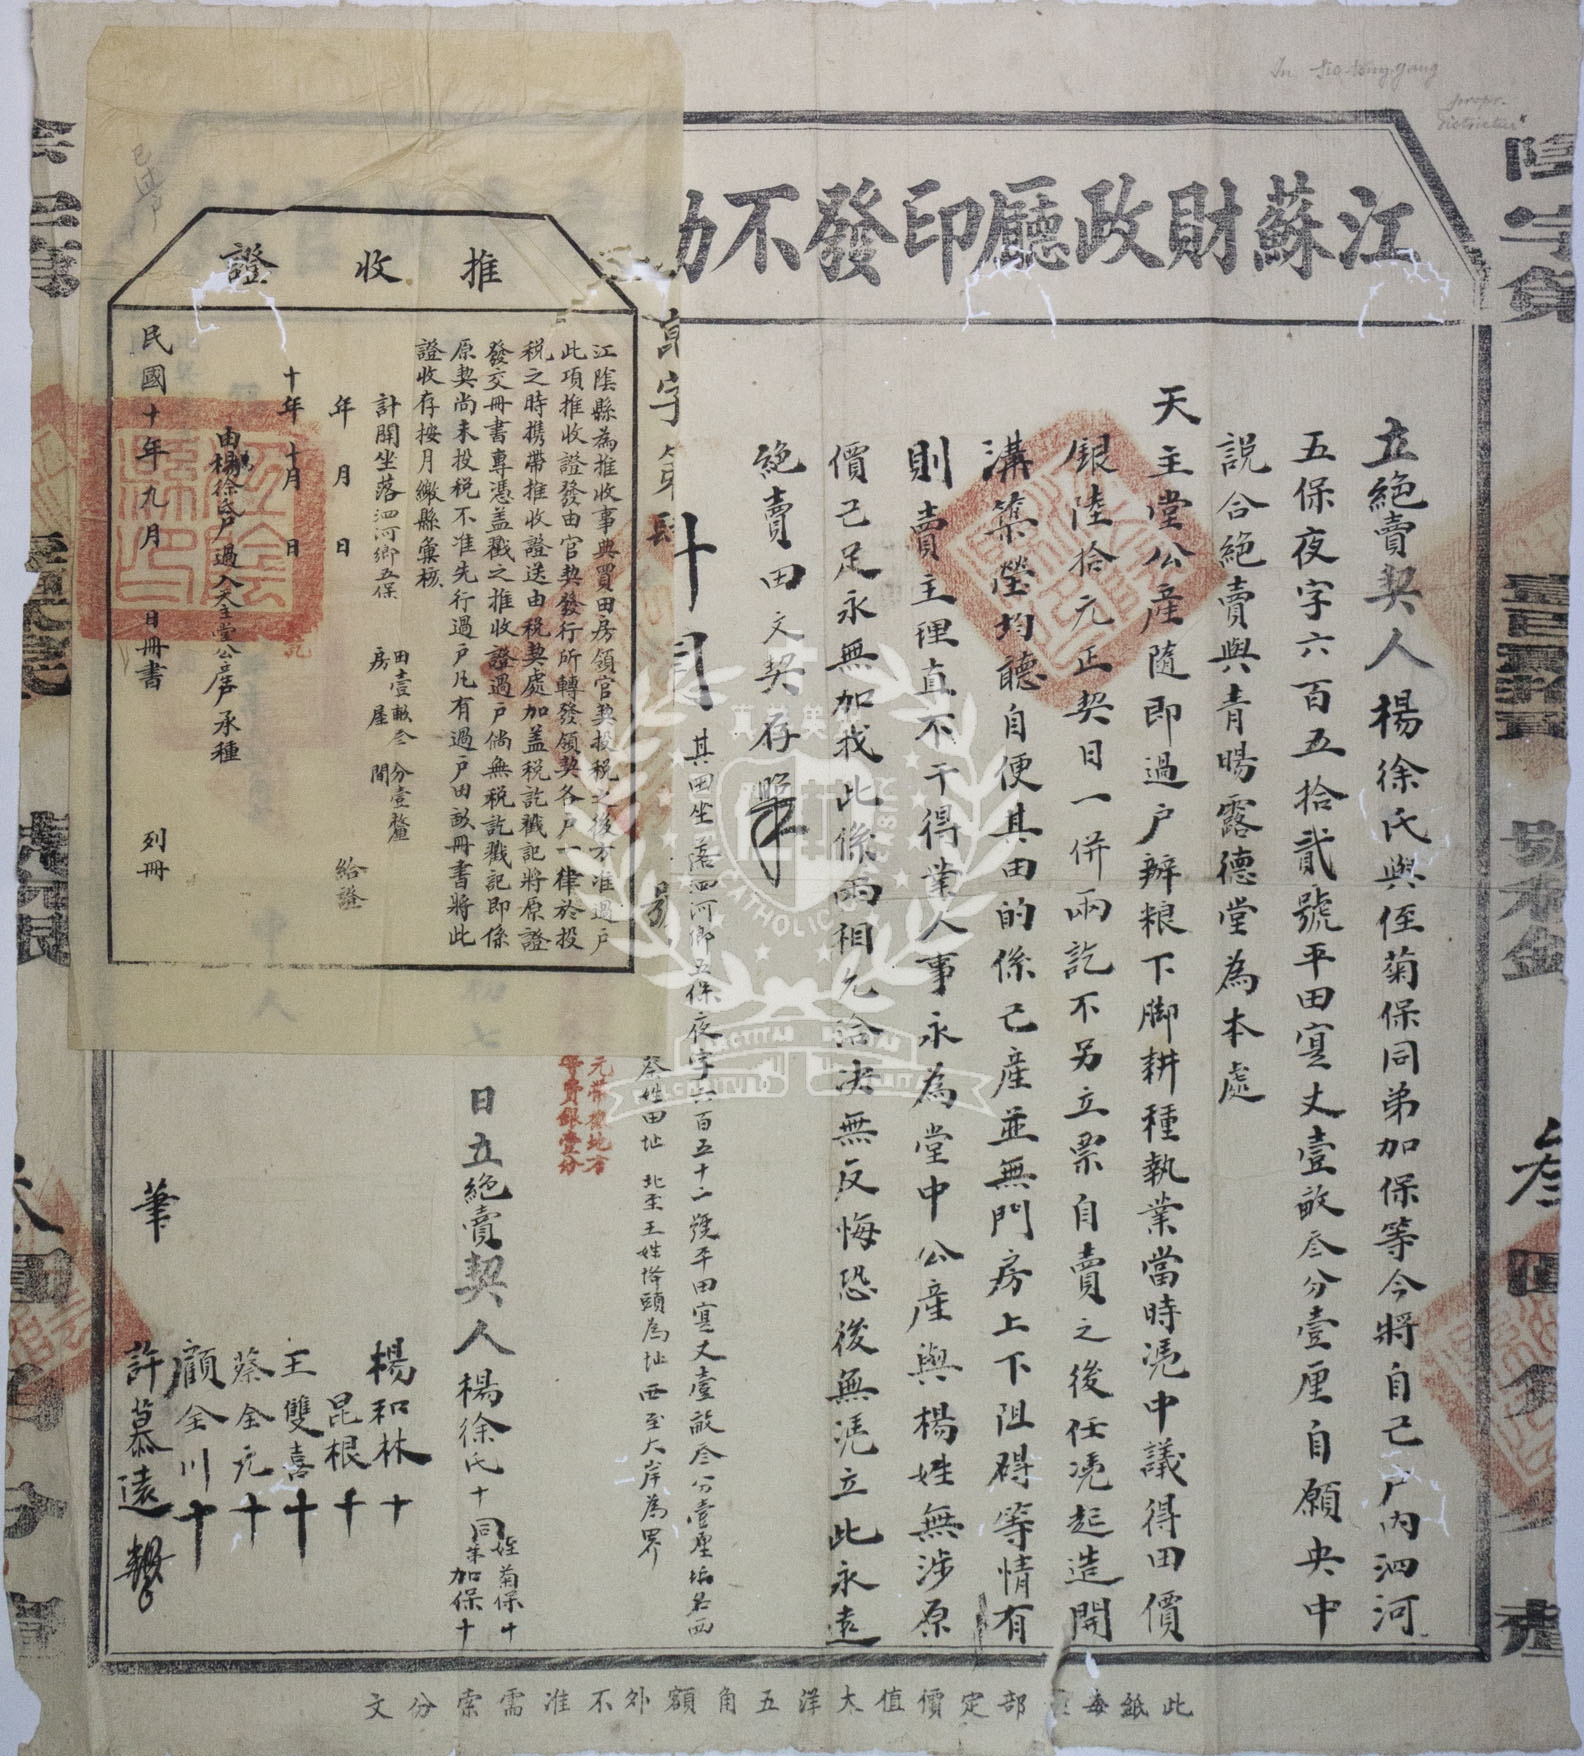 江蘇財政廳印發不動
立絕賣契人楊徐氏與侄菊保同弟加保等今將自己戶內泗河
五保夜字六百五拾貳號平田寔丈壹畝叁分壹厘自願央中
說合絕賣與青暘露德堂為本處
天主堂公產隨即過戶辦粮下脚耕種執業當時憑中議得田價
銀陸拾元正契日一併兩訖不另立票自賣之後任憑起造開
溝築塋均聽自便其田的係己產並無門房上下阻碍等情有
則賣主理直不干得業人事永為堂中公產與楊姓無涉原
價已足永無加找此係兩相允洽决無反悔恐後無憑立此永遠
絕賣田文契存照
十 月 其田坐落泗河鄉五保夜字六百五十二號平田寔丈壹畝叁分壹厘
蔡姓田址 北至王姓 頭為址 西至大岸為界
元帶徵地方
學費銀壹分
日立絕賣契人楊徐氏十 同 姪菊保十
弟加保十
楊和林十
昆根十
王雙喜十
蔡全元十
顧全川十
筆 許慕遠
推收證
江陰縣為推收事典買田房領官契投稅之後方准過戶
此項推收證發由官契發行所轉發領契各戶一律於投
稅之時携帶推收證送由稅契處加盖稅訖戳記將原證
發交冊書專憑盖戳之推收證過戶倘無稅訖戳記即係
原契尚未投稅不准先行過戶凡有過戶田畝冊書將此
證收存按月繳縣彙核
計開坐落泗河鄉五保 田壹畝叁分壹釐
房 屋 間
年 月 日 給證
十年十月 日
由楊徐氏戶過入天主堂公產戶承種
民國十年九月 日冊書 列冊
已过户
此紙每 部定價值大洋五角額外不准需索分文